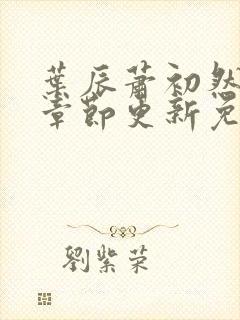 葉辰蕭初然
章節更新免
劉紫荣